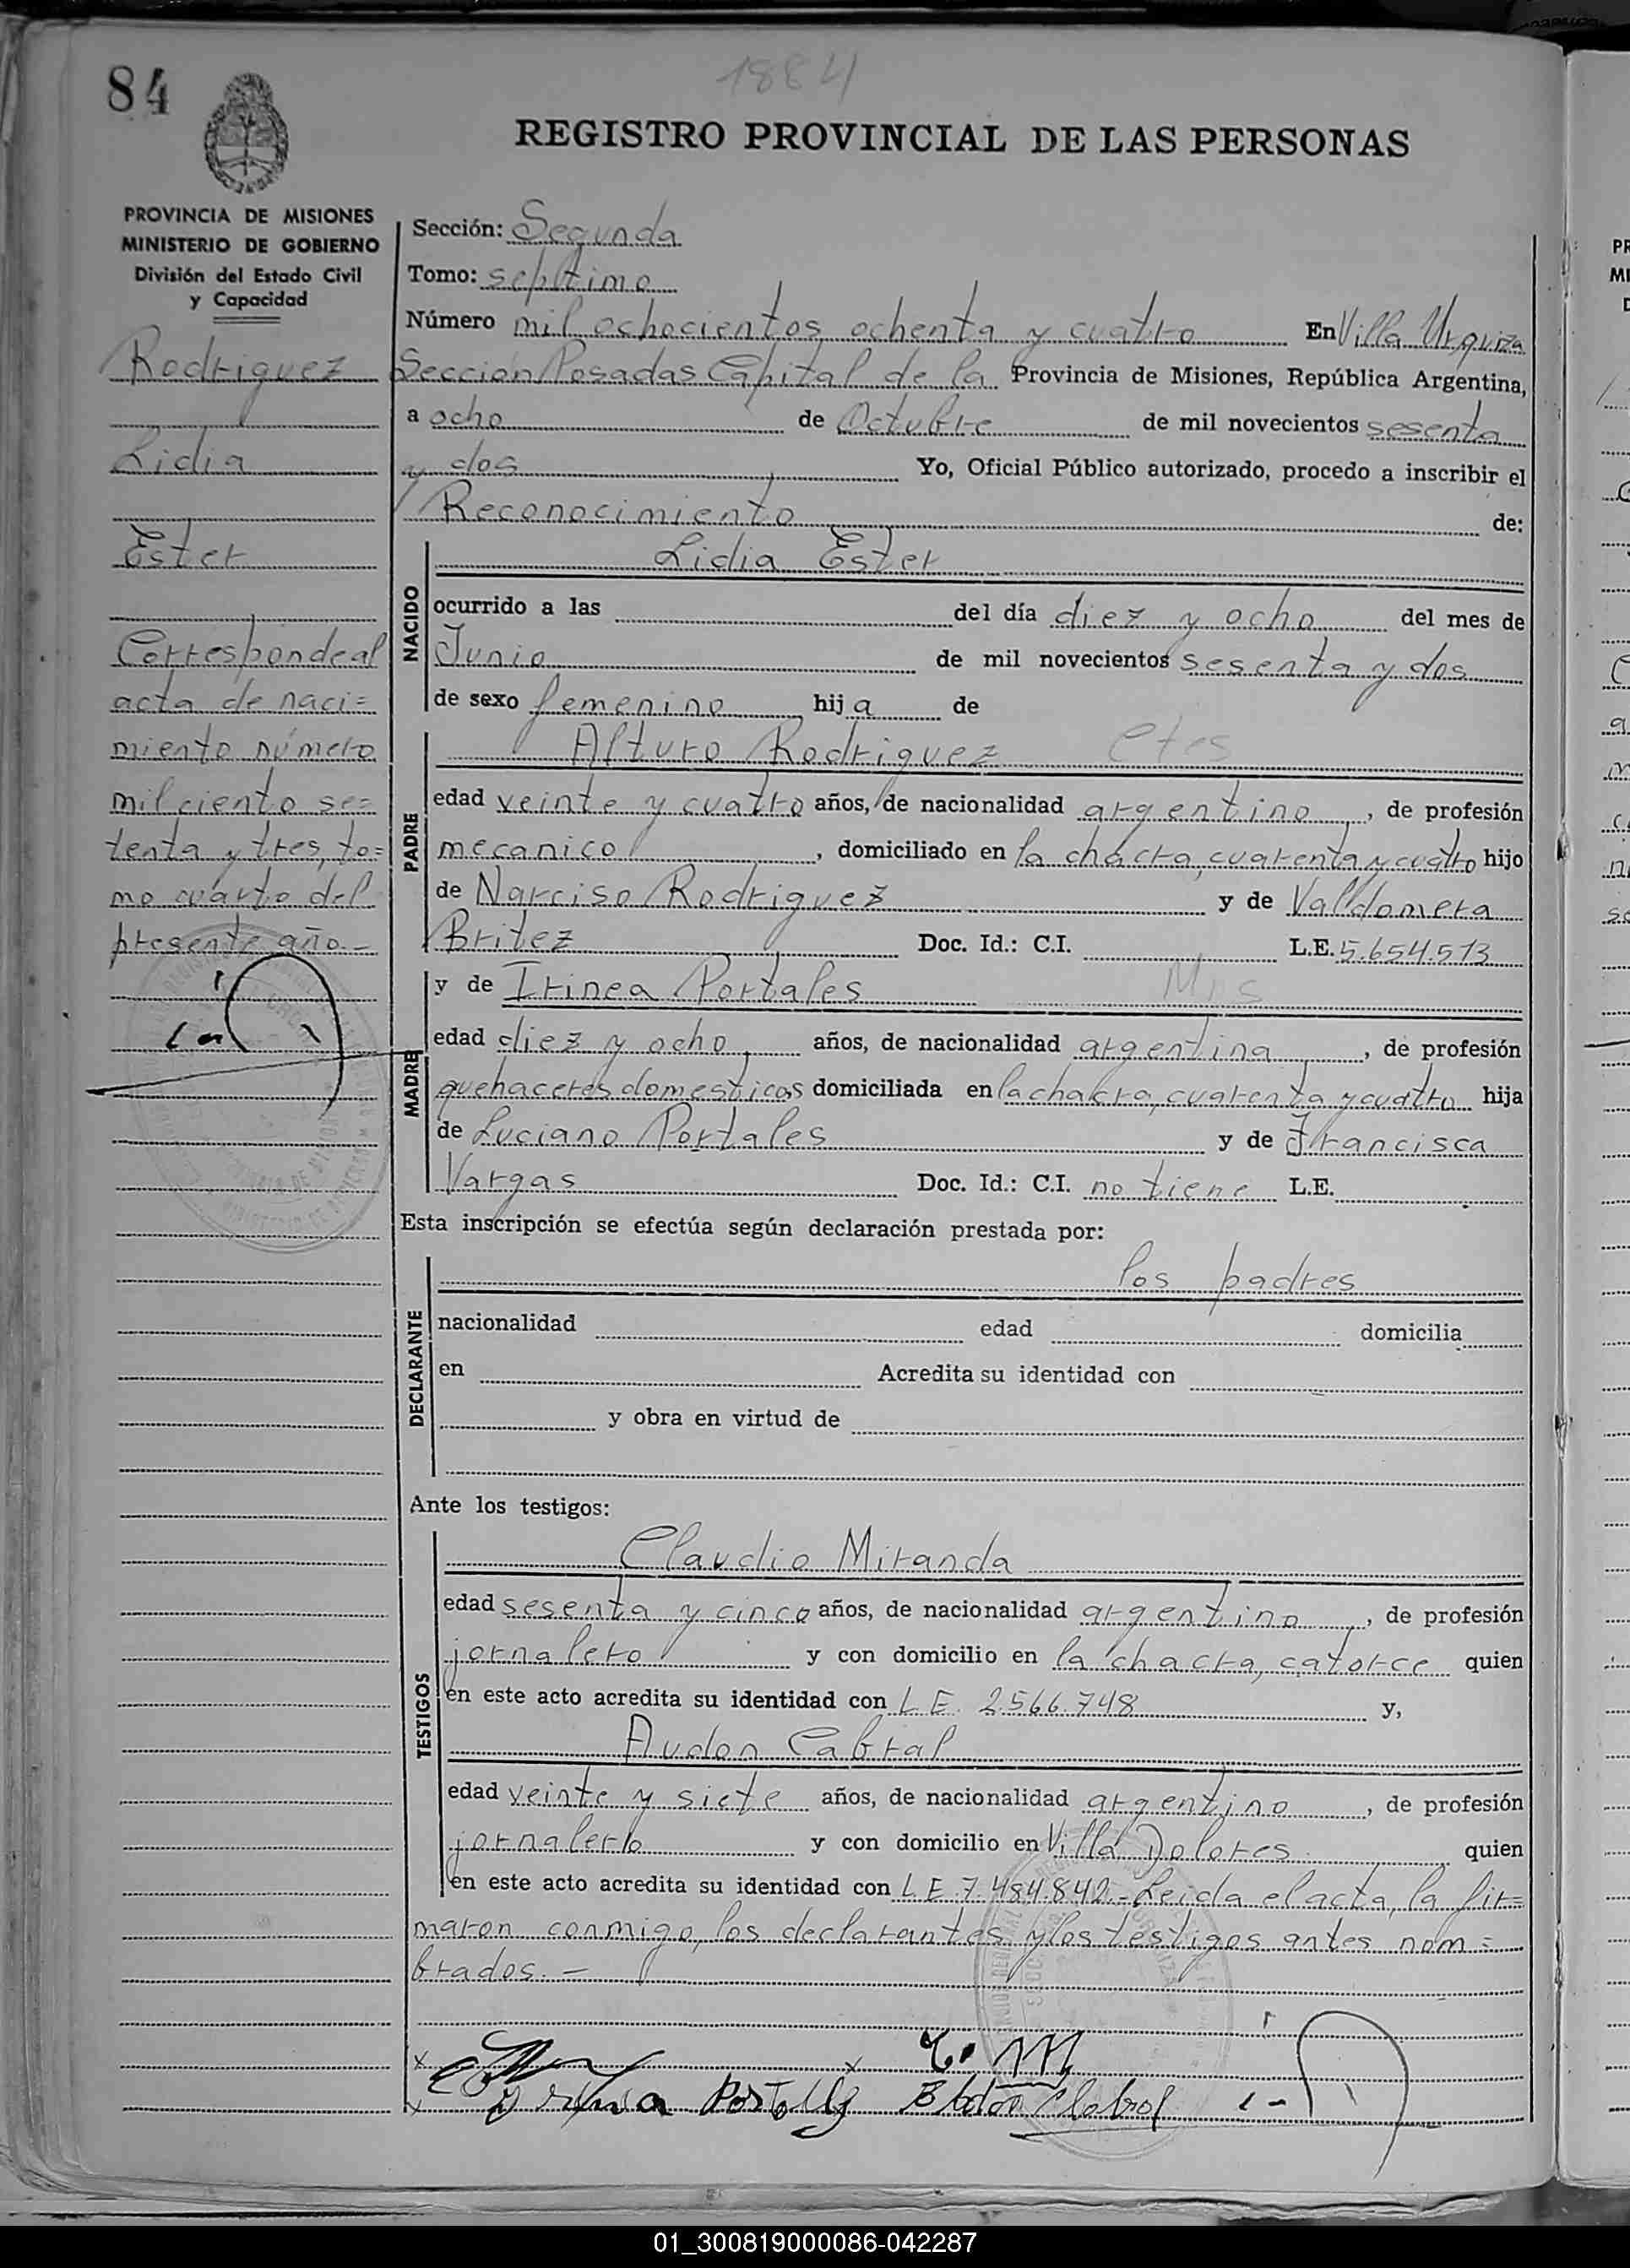 84
1884
REGISTRO PROVINCIAL DE LAS PERSONAS
PROVINCIA DE MISIONES
MINISTERIO DE GOBIERNO
División del Estado Civil
y Capacidad
Rodriguez
Lidia
Ester
Correspondeal
acta de naci=
miento número
mil ciento se=
tenta y tres, to=
mo cuarto del
presente año.-
Sección: Segunda
Tomo: septimo
Número mil ochocientos ochenta y cuatro En Villa Urquiza
Sección Posadas Capital de la Provincia de Misiones, República Argentina,
a ocho de Octubre de mil novecientos sesenta
y dos Yo, Oficial Público autorizado, procedo a inscribir el
Reconocimiento de:
NACIDO
Lidia Ester
ocurrido a las del día diez y ocho del mes de
Junio de mil novecientos sesenta y dos
de sexo femenino hija de
PADRE
Arturo Rodriguez
edad veinte y cuatro años, de nacionalidad argentino, de profesión
mecanico, domiciliado en la chacra, cuarenta y cuatro hijo
de Narciso Rodriguez y de Valdomera
Britez Doc. Id.: C.I. L.E. 5.654.513
MADRE
y de Irinea Portales
edad diez y ocho, años, de nacionalidad argentina, de profesión
quehaceres domesticos domiciliada en la chacra, cuarenta y cuatro hija
de Luciano Portales y de Francisca
Vargas Doc. Id.: C.I. no tiene L.E.
Esta inscripción se efectúa según declaración prestada por:
DECLARANTE
los padres
nacionalidad edad domicilia
en Acredita su identidad con
y obra en virtud de
Ante los testigos:
TESTIGOS
Claudio Miranda
edad sesenta y cinco años, de nacionalidad argentino, de profesión
jornalero y con domicilio en la chacra, catorce quien
en este acto acredita su identidad con L E. 2.566.748 y,
Audon Cabral
edad veinte y siete años, de nacionalidad argentino, de profesión
jornalero y con domicilio en Villa Dolores quien
en este acto acredita su identidad con L E 7.484.842.- Leida el acta, la fir=
maron conmigo, los declarantes y los testigos antes nom=
brados.-
01_300819000086-042287